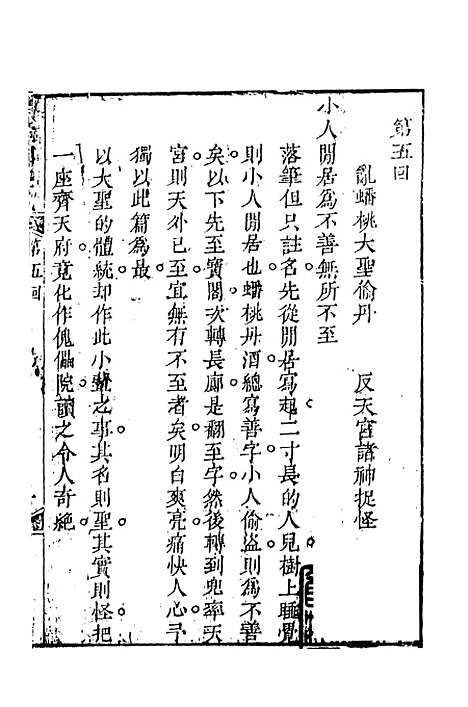 第五回
亂蟠桃大聖偷丹　反天宮諸神捉怪
小人閒居爲不善無所不至
落筆但只註名先從閒居寫起二寸長的人兒樹上睡覺
則小人閒居也蟠桃丹酒總寫善字小人偷盜則爲不善
矣以下先至寶閣次轉長廊是翻至字然後轉到兜率天
宮則天外已至宜無有不至者矣明白爽亮痛快人心予
獨以此篇爲最
以大聖的體統却作此小輩之事其名則聖其實則怪把
一座齊天府竟化作傀儡院讀之令人奇絶
第五回